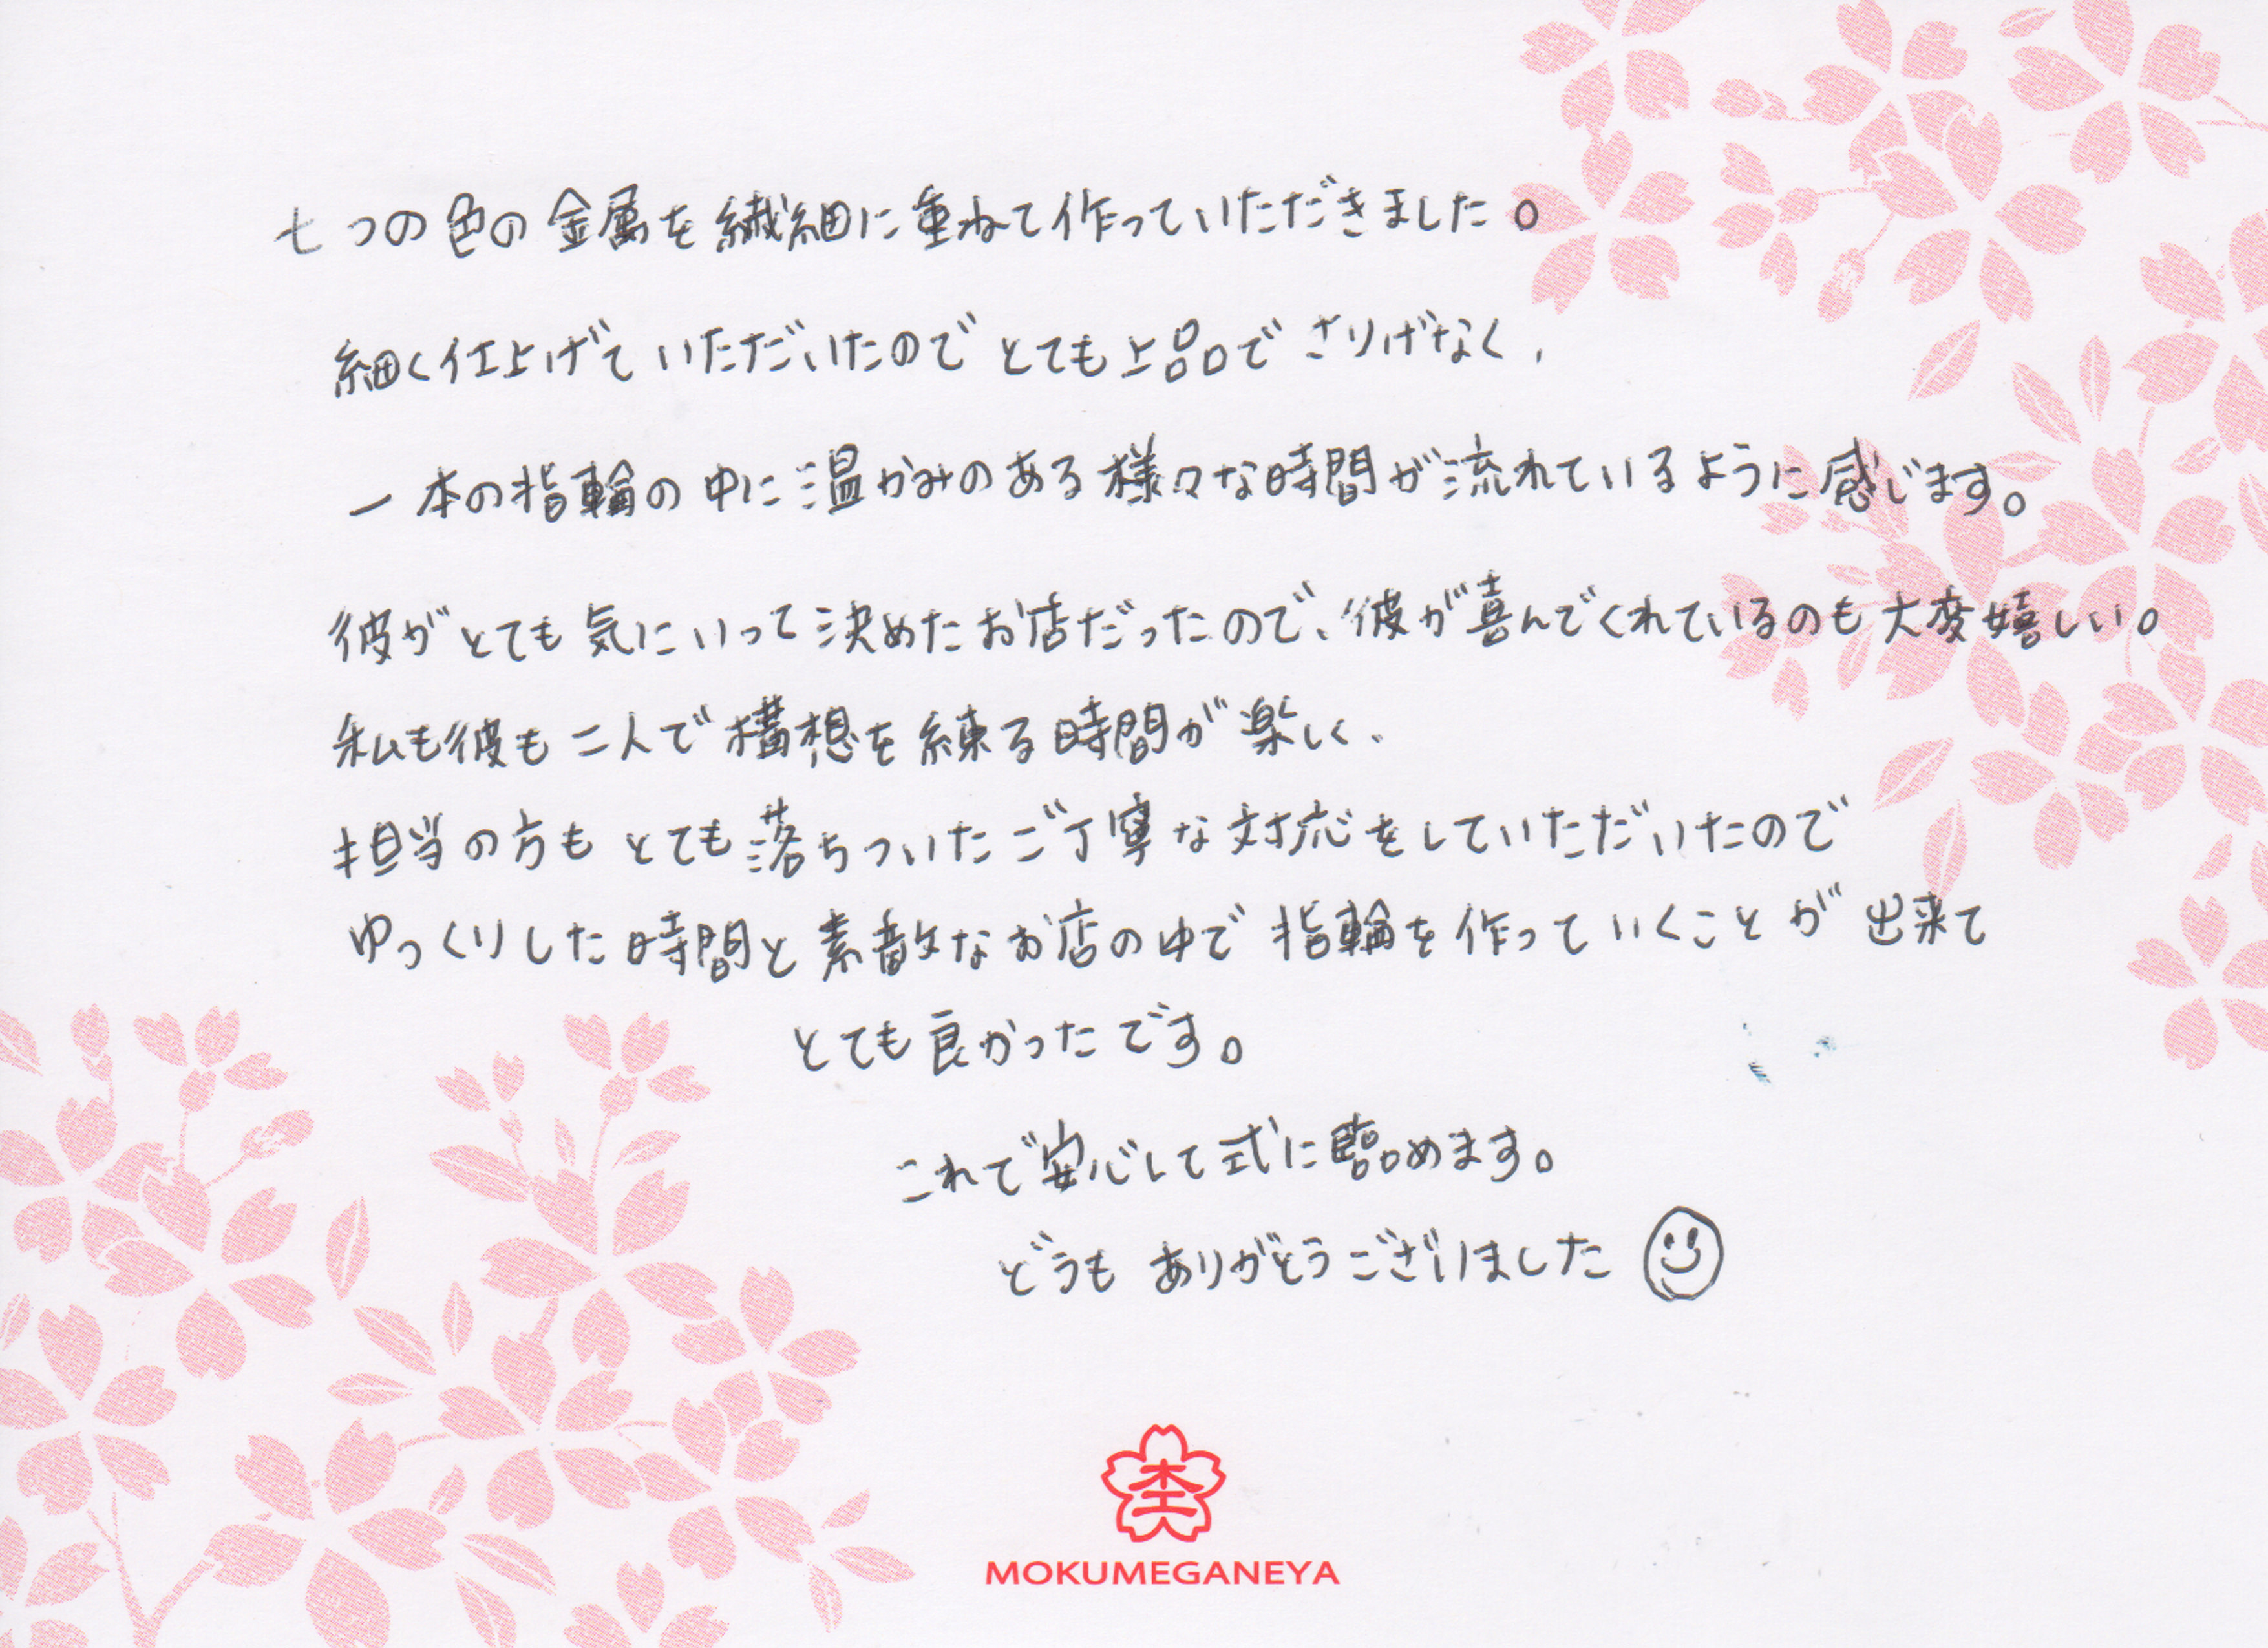 七つの色の金属を繊細に重ねて作っていただきました。
細く仕上げていただいたのでとても上品でさりげなく、
一本の指輪の中に温かみのある様々な時間が流れているように感じます。
彼がとても気にいって決めたお店だったので、彼が喜んでくれているのも大変嬉しい。
私も彼も二人で構想を練る時間が楽しく、
担当の方もとても落ちついたご丁寧な対応をしていただいたので
ゆっくりした時間と素敵なお店の中で指輪を作っていくことが出来て
とても良かったです。
これで安心して式に臨めます。
どうもありがとうございました
杢
MOKUMEGANEYA